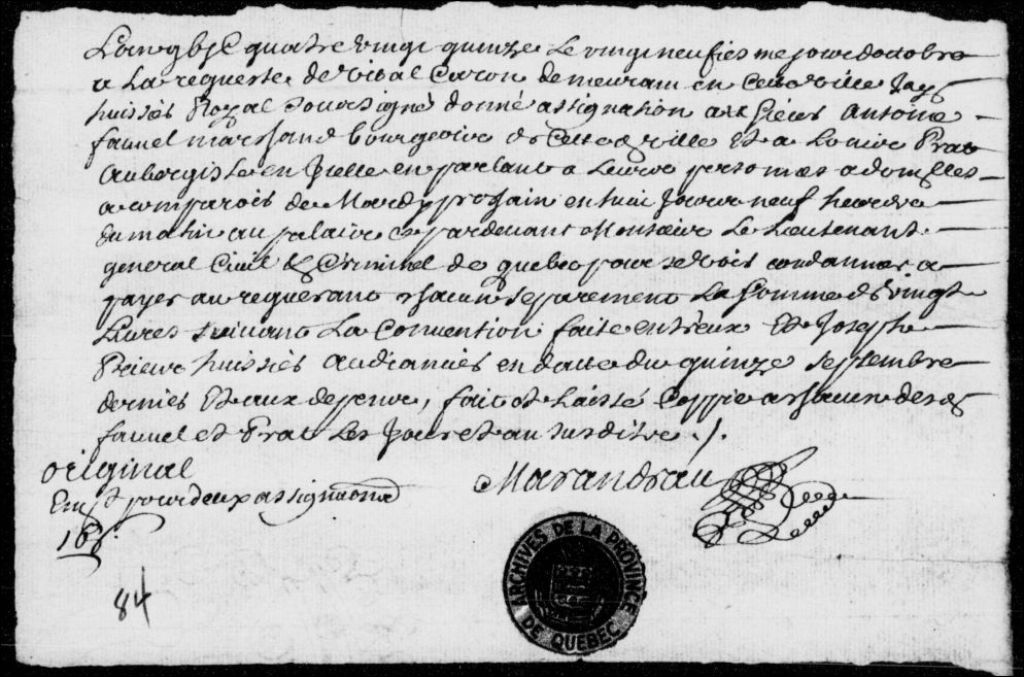 Lan gbjC quatre vingt quinze Le vingt neufiesme jour doctobre
a La requeste de vital Caron demeurant en Cette ville Jay
huissiés Royal soubsigné donné assignation aux sieurs Antoine
fauvel marchand bourgeois de Cette ville Et a Louis Prat
Aubergiste en Jcelle en parlant a Leurs personnes a domilles
a comparois de Mardy prochain en huit Jours neuf heures
du matin au palais pardevant Monsieur Le Lieutenant
general Civil & Criminel de quebec pour se vois condamner a
payer au requerant chacun separement La somme de vingt
Livres suivant La Convention faite entreux Et Joseph
Prieur huissiés Audiancies en datte du quinze septembre
dernies Et aux depens, fait et Laissé Coppie a chacun desd
fauvel et Prat Les Jour et an susdits ./.
original
pour deux assignaons
Marandeau
16s
84
ARCHIVES DE LA PROVINCE
DE QUEBEC